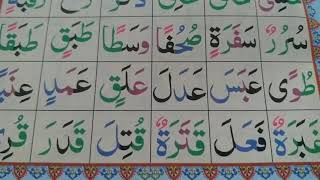 سُرُرٌ سَفَرَةٍ صُحُفًا وَسَطًا طَبَقٍ طَبَقًا
طُوًى عَبَسَ عَدَلَ عَلَقٍ عَمَدٍ عِنَبًا
غَبَرَةٌ فَعَلَ قَتَرَةٌ قُتِلَ قَدَرَ